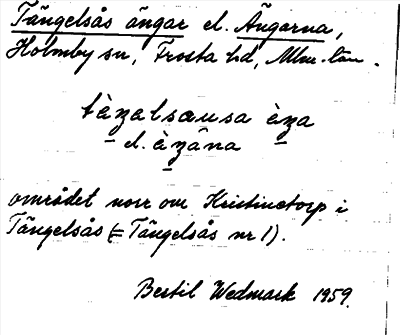 Tängelsås ängar el. Ängarna,
Holmby sn, Frosta hd, Mlm. län.
tèŋəlsausa èŋa
el. èŋâna
området norr om Kristinetorp i
Tängelsås (= Tängelsås nr 1).
Bertil Wedmark 1959.